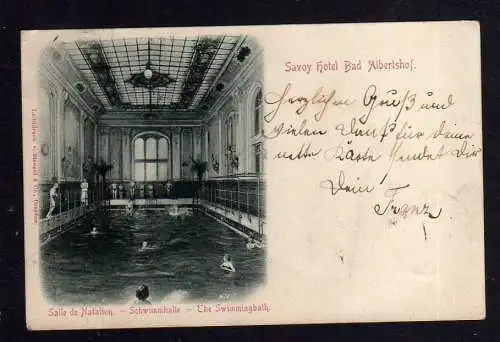 Savoy Hotel Bad Albertshof.
Herzlichen Gruß und
vielen Dank für deine
nette Karte sendet Dir
Dein
Franz
Salle de Natation. – Schwimmhalle – The Swimmingbath